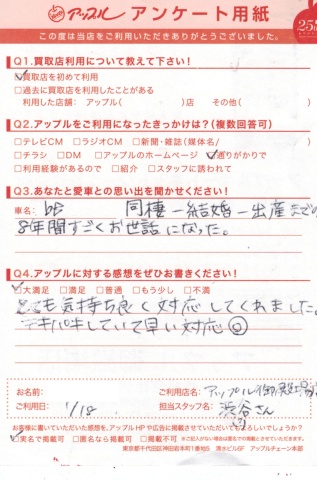 アップル アンケート用紙
25th
この度は当店をご利用いただきありがとうございました。
Q1.買取店利用について教えて下さい！
☑買取店を初めて利用
□過去に買取店を利用したことがある
利用した店舗： アップル（　　　　）店　その他（　　　　）
Q2.アップルをご利用になったきっかけは？（複数回答可）
□テレビCM □ラジオCM □新聞・雑誌（媒体名/　　　　）
□チラシ □DM □アップルのホームページ ☑通りがかりで
□利用経験があるので □紹介 □スタッフに誘われて
Q3.あなたと愛車との思い出を聞かせください！
車名： bB 同棲－結婚－出産までの
8年間すごくお世話になった。
Q4.アップルに対する感想をぜひお書きください！
☑大満足 □満足 □普通 □もう少し □不満
とても気持ち良く対応してくれました。
テキパキしていて早い対応◎
お名前：
ご利用店名： アップル御殿場
ご利用日： 1/18
担当スタッフ名： 渋谷さん
お客様に書いていただいた感想を、アップルHPや広告に掲載させていただいてもよろしいでしょうか？
☑実名で掲載可 □匿名なら掲載可 □掲載不可 ※ご記入がない場合は匿名での掲載とさせていただきます。
東京都千代田区神田岩本町1番地5 清水ビル6F アップルチェーン本部